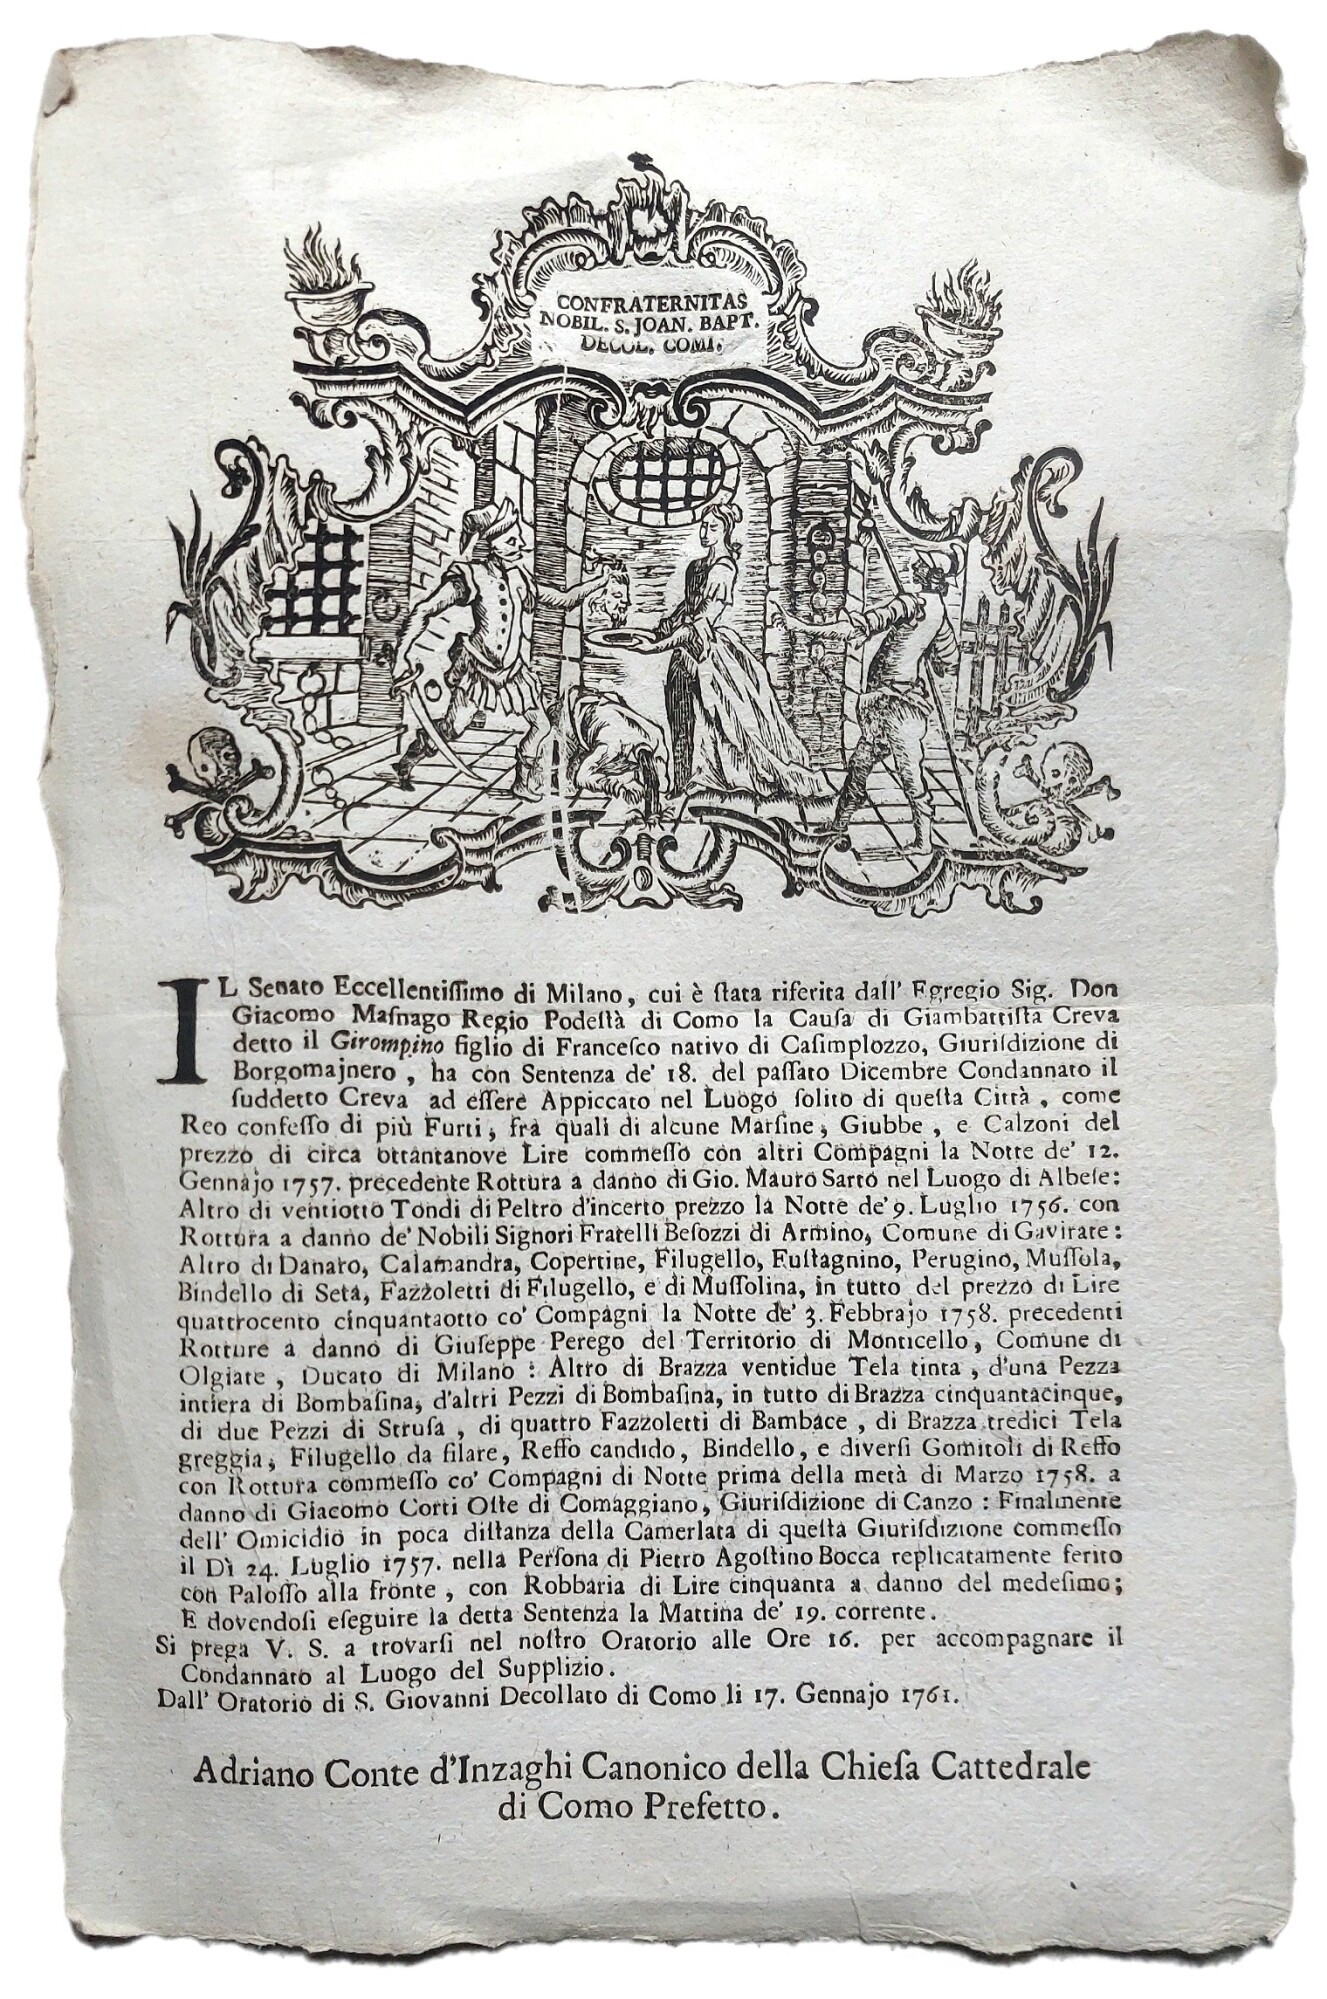 CONFRATERNITAS
NOBIL. S. JOAN. BAPT.
DECOL. COMI.
IL Senato Eccellentiſſimo di Milano, cui è ſtata riferita dall' Egregio Sig. Don
Giacomo Maſnago Regio Podeſtà di Como la Cauſa di Giambattiſta Creva
detto il Girompino figlio di Franceſco nativo di Caſimplozzo, Giuriſdizione di
Borgomajnero, ha con Sentenza de' 18. del paſſato Dicembre Condannato il
ſuddetto Creva ad eſſere Appiccato nel Luogo ſolito di queſta Città, come
Reo confeſſo di più Furti, fra quali di alcune Marſine, Giubbe, e Calzoni del
prezzo di circa ottantanove Lire commeſſo con altri Compagni la Notte de' 12.
Gennajo 1757. precedente Rottura a danno di Gio. Mauro Sarto nel Luogo di Albeſe:
Altro di ventiotto Tondi di Peltro d'incerto prezzo la Notte de' 9. Luglio 1756. con
Rottura a danno de' Nobili Signori Fratelli Beſozzi di Armino, Comune di Gavirate:
Altro di Danaro, Calamandra, Copertine, Filugello, Fuſtagnino, Perugino, Muſſola,
Bindello di Seta, Fazzoletti di Filugello, e di Muſſolina, in tutto del prezzo di Lire
quattrocento cinquantaotto co' Compagni la Notte de' 3. Febbrajo 1758. precedenti
Rotture a danno di Giuſeppe Perego del Territorio di Monticello, Comune di
Olgiate, Ducato di Milano: Altro di Brazza ventidue Tela tinta, d'una Pezza
intiera di Bombaſina, d'altri Pezzi di Bombaſina, in tutto di Brazza cinquantacinque,
di due Pezzi di Struſa, di quattro Fazzoletti di Bambace, di Brazza tredici Tela
greggia, Filugello da filare, Reffo candido, Bindello, e diverſi Gomitoli di Reffo
con Rottura commeſſo co' Compagni di Notte prima della metà di Marzo 1758. a
danno di Giacomo Corti Oſte di Comaggiano, Giuriſdizione di Canzo: Finalmente
dell' Omicidio in poca diſtanza della Camerlata di queſta Giuriſdizione commeſſo
il Dì 24. Luglio 1757. nella Perſona di Pietro Agoſtino Bocca replicatamente ferito
con Paloſſo alla fronte, con Robbaria di Lire cinquanta a danno del medeſimo;
E dovendoſi eſeguire la detta Sentenza la Mattina de' 19. corrente.
Si prega V. S. a trovarſi nel noſtro Oratorio alle Ore 16. per accompagnare il
Condannato al Luogo del Supplizio.
Dall' Oratorio di S. Giovanni Decollato di Como li 17. Gennajo 1761.
Adriano Conte d'Inzaghi Canonico della Chieſa Cattedrale
di Como Prefetto.